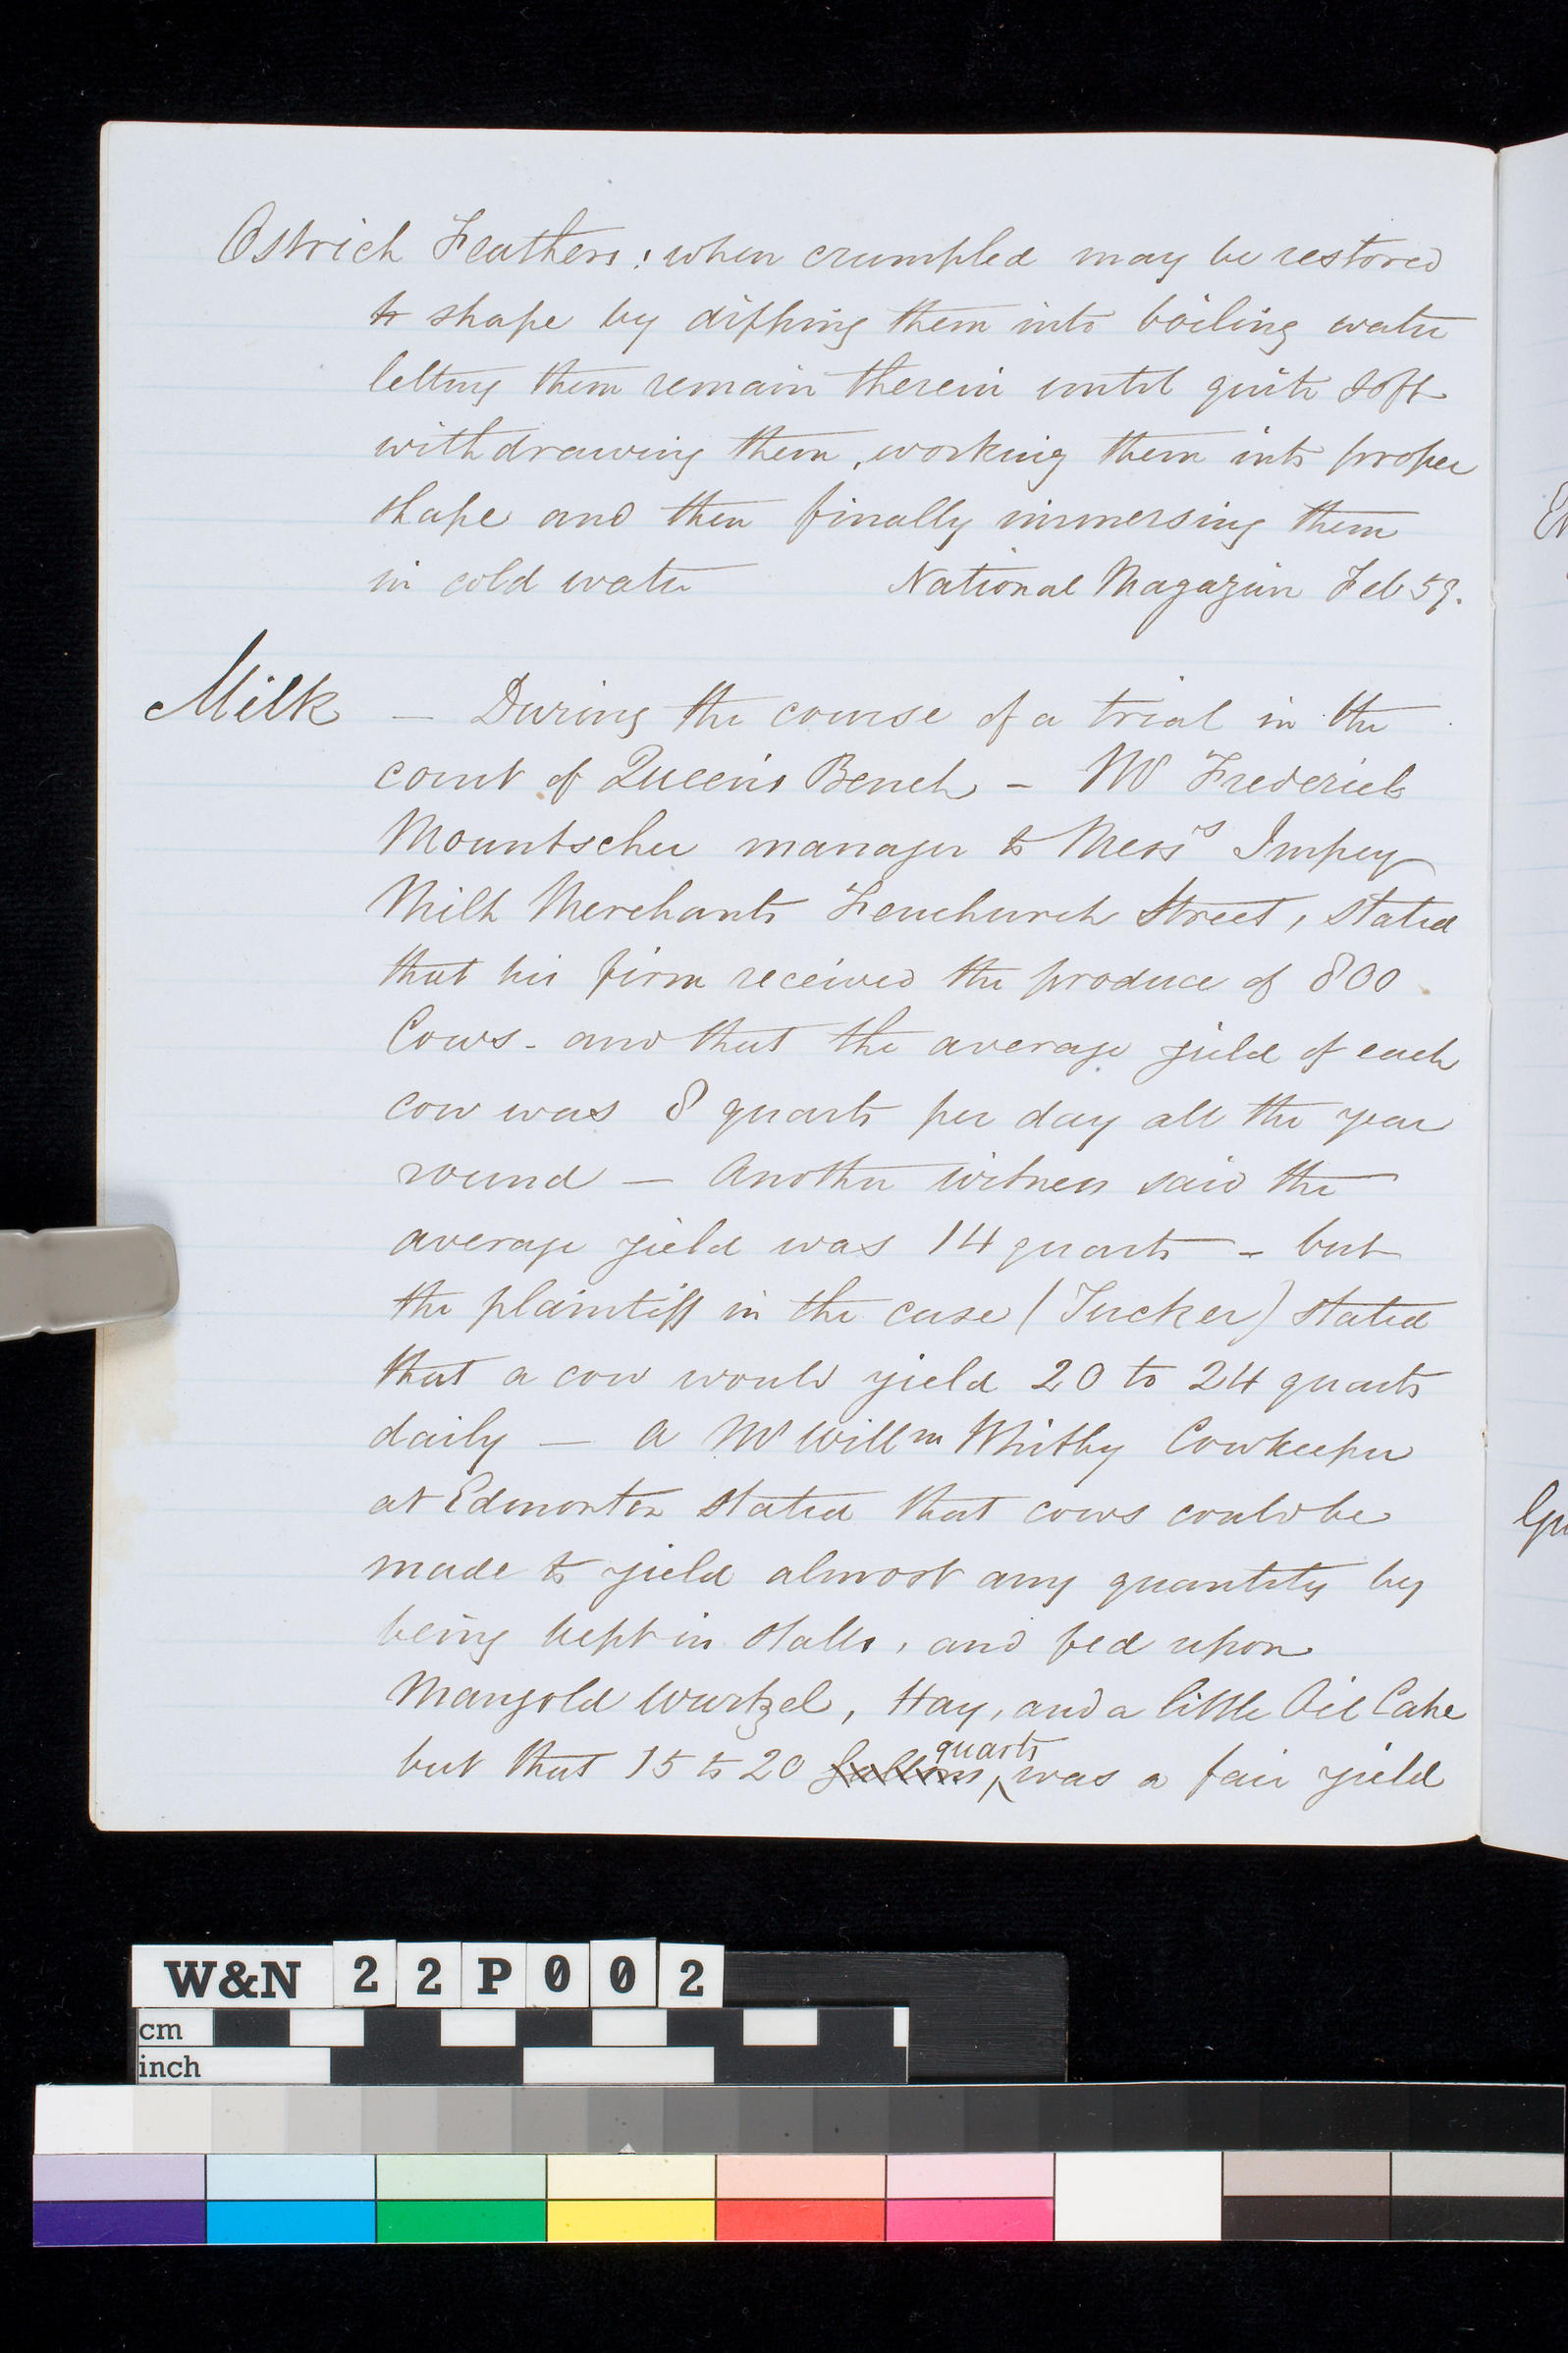 Ostrich Feathers: when crumpled may be restored
to shape by dipping them into boiling water
letting them remain therein until quite soft
withdrawing them, working them into proper
shape and then finally immersing them
in cold water National Magazin Feb 59.
Milk — During the course of a trial in the
court of Queen's Bench — Mr Frederick
Mountscher manager to Messrs Impey
Milk Merchants Fenchurch Street, stated
that his firm received the produce of 800
Cows - and that the average yield of each
cow was 8 quarts per day all the year
round — Another witness said the
average yield was 14 quarts - but
the plaintiff in the case (Tucker) stated
that a cow would yield 20 to 24 quarts
daily — A Mr Willm Whitby Cowkeeper
at Edmonton stated that cows could be
made to yield almost any quantity by
being kept in stalls, and fed upon
Mangold Wurtzel, Hay, and a little Oil Cake
but that 15 to 20 Gallons quarts was a fair yield
Gu
W&N 22P002
cm
inch